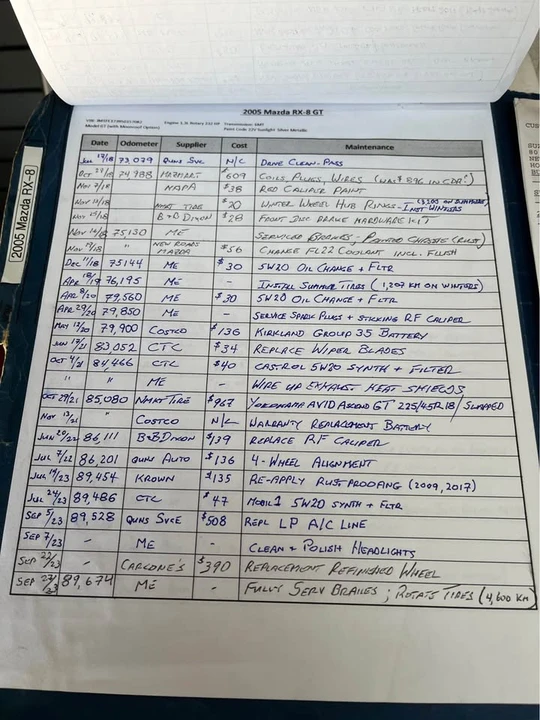 2005 Mazda RX-8 GT
Engine 1.3L Rotary 232 HP Transmission: 6MT
Model GT (with Moonroof Option) Paint Code 22V Sunlight Silver Metallic
Date Odometer Supplier Cost Maintenance
73,079 Quns Svc N/C Drive Clean - Pass
74,988 Mazmart $609 Coils, Plugs, Wires (was $896 in CDA!)
Nov 7/18 NAPA $38 Red Caliper Paint
Nov 13/18 Nmkt Tire $20 Winter Wheel Hub Rings -
Nov 15/18 B+B Dixon $28 Front Disc Brake Hardware Kit
Nov 16/18 75130 ME - Serviced Brakes - Painted Chassis (Rust)
Nov 19/18 " New Roads Mazda $56 Change FL22 Coolant incl. Flush
Dec 11/18 75144 ME $30 5W20 Oil Change + Fltr
Apr 18/19 76,195 ME - Install Summer Tires (1,207 km on winters)
Apr 8/20 79,560 ME $30 5W20 Oil Change + Fltr
Apr 29/20 79,850 ME - Service Spark Plugs + Sticking RF Caliper
May 13/20 79,900 Costco $136 Kirkland Group 35 Battery
Jun 17/21 83,052 CTC $34 Replace Wiper Blades
Oct 4/21 84,466 CTC $40 Castrol 5W20 Synth + Filter
" " ME - Wire up Exhaust Heat Shields
Oct 29/21 85,080 Nmkt Tire $967 Yokohama AVID Ascend GT 225/45R18 / Swapped
Nov 13/21 " Costco N/C Warranty Replacement Battery
Jun 20/22 86,111 B+B Dixon $139 Replace RF Caliper
Jul 7/22 86,201 Quns Auto $136 4-Wheel Alignment
Jul 19/23 89,454 Krown $135 Re-apply Rustproofing (2009, 2017)
Jul 24/23 89,486 CTC $47 Mobil 1 5W20 Synth + Fltr
Sep 5/23 89,528 Quns Svce $508 Repl LP A/C Line
Sep 7/23 - ME - Clean + Polish Headlights
Sep 22/23 - Carlone's $390 Replacement Refinished Wheel
Sep 27/23 89,674 ME - Fully Serv Brakes; Rotate Tires (4,600 km)
2005 Mazda RX-8